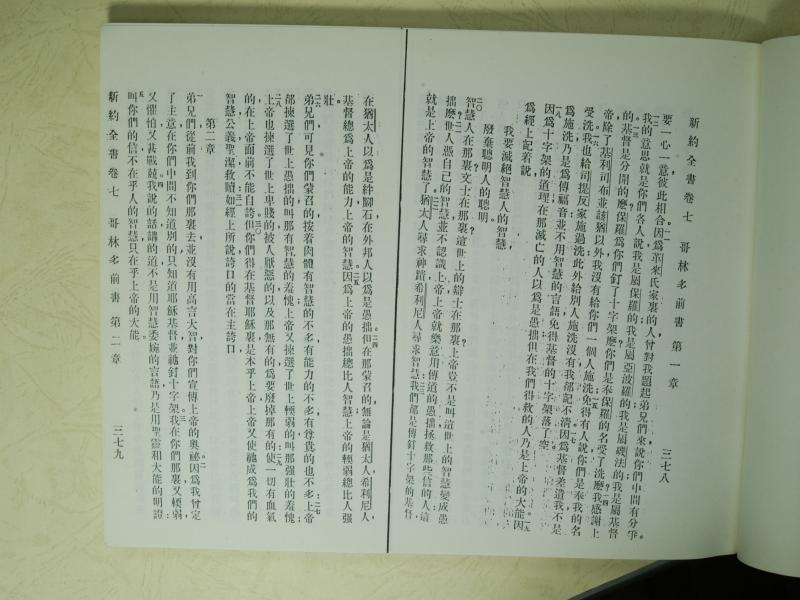 新約全書卷七　哥林多前書　第一章　三七八
要一心一意彼此相合因爲革來氏家裏的人曾對我題起弟兄們來說你們中間有分爭
我的意思就是你們各人說我是屬保羅的我是屬亞波羅的我是屬磯法的我是屬基督
的基督是分開的麽保羅爲你們釘了十字架麽你們是奉保羅的名受了洗麽我感謝上
帝除了基利司布並該猶以外我沒有給你們一個人施洗免得有人說你們是奉我的名
受洗我也給司提反家施過洗此外給別人施洗沒有我都記不清因爲基督差遣我不是
爲施洗乃是爲傳福音並不用智慧的言語免得基督的十字架落了空
因爲十字架的道理在那滅亡的人以爲是愚拙但在我們得救的人乃是上帝的大能因
爲經上記着說
我要滅絕智慧人的智慧
廢棄聰明人的聰明
智慧人在那裏文士在那裏這世上的辯士在那裏上帝豈不是叫這世上的智慧變成愚
拙麽世人憑自己的智慧並不認識上帝上帝就樂意用傳道的愚拙拯救那些信的人這
就是上帝的智慧了猶太人尋求神蹟希利尼人尋求智慧我們都是傳釘十字架的基督
在猶太人以爲是絆腳石在外邦人以爲是愚拙但在那蒙召的無論是猶太人希利尼人
基督總爲上帝的能力上帝的智慧因爲上帝的愚拙總比人智慧上帝的輭弱總比人强
壯
弟兄們可見你們蒙召的按着肉體有智慧的不多有能力的不多有尊貴的也不多上帝
都揀選了世上愚拙的叫那有智慧的羞愧上帝又揀選了世上輭弱的叫那强壯的羞愧
上帝也揀選了世上卑賤的被人厭惡的以及那無有的爲要廢掉那有的使一切有血氣
的在上帝面前不能自誇但你們得在基督耶穌裏是本乎上帝上帝又使祂成爲我們的
智慧公義聖潔救贖如經上所說誇口的當在主誇口
第二章
弟兄們從前我到你們那裏去並沒有用高言大智對你們宣傳上帝的奧祕因爲我曾定
了主意在你們中間不知道別的只知道耶穌基督並祂釘十字架我在你們那裏又輭弱
又懼怕又甚戰兢我說的話講的道不是用智慧委婉的言語乃是用聖靈和大能的明證
叫你們的信不在乎人的智慧只在乎上帝的大能
新約全書卷七　哥林多前書　第二章　三七九